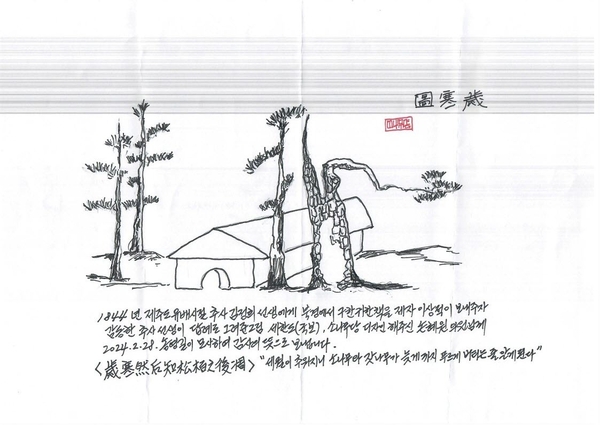 圖寒歲
1844년 제주도유배시절 추사 김정희 선생에게 북경에서 구한 귀한책을 제자 이상적이 보내주자
감동한 추사 선생이 답례로 그려준 그림 세한도(국보), 소나무당 디자인 해주신
2024.2.28. 모사하여 감사의 뜻으로 보냅니다.
〈歲寒然后知松栢之後凋〉 "세월이 추워지니 소나무와 잣나무가 늦게까지 푸르게 버티는 줄 알게된다"